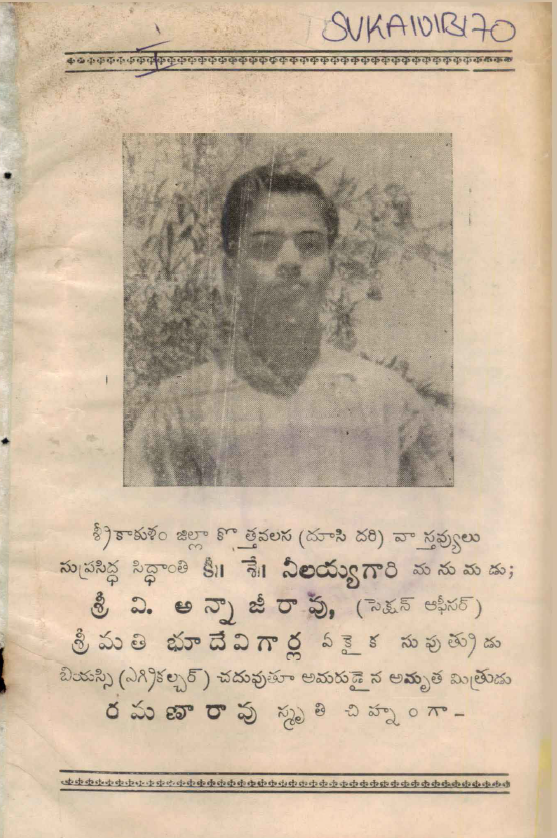 SVKA101B170
శ్రీకాకుళం జిల్లా కొత్తవలస (దూసి దరి) వాస్తవ్యులు
సుప్రసిద్ధ సిద్ధాంతి కీ॥ శే॥ నీలయ్యగారి మనుమడు;
శ్రీ వి. అన్నాజీరావు, (సెక్షన్ ఆఫీసర్)
శ్రీమతి భూదేవిగార్ల ఏకైక సుపుత్రుడు
బియస్సి (ఎగ్రికల్చర్) చదువుతూ అమరుడైన అమృత మిత్రుడు
రమణారావు స్మృతి చిహ్నంగా -